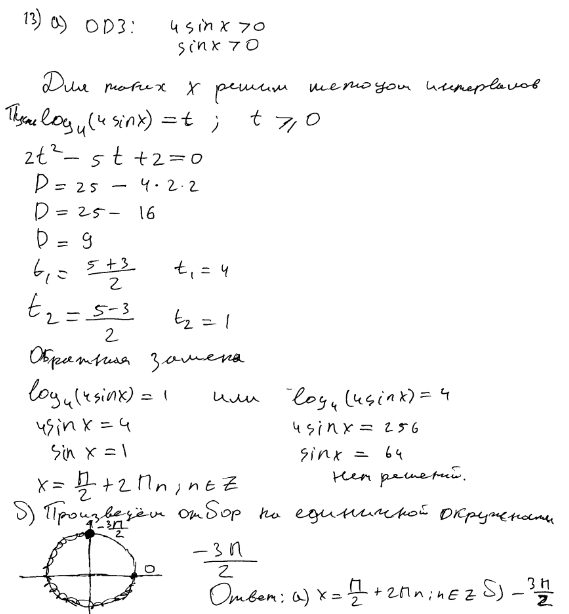 13) а) ОДЗ: 4 sin x > 0
sin x > 0
Для таких x решим методом интервалов
Пусть log₄(4 sin x) = t ; t ⩾ 0
2t² − 5t + 2 = 0
D = 25 − 4 · 2 · 2
D = 25 − 16
D = 9
t₁ = (5+3)/2 t₁ = 4
t₂ = (5−3)/2 t₂ = 1
Обратная замена
log₄(4 sin x) = 1 или log₄(4 sin x) = 4
4 sin x = 4 4 sin x = 256
sin x = 1 sin x = 64
x = П/2 + 2Пn ; n ∈ Z Нет решений.
б) Произведём отбор на единичной окружности
−3П/2
0
−3П/2
Ответ: а) x = П/2 + 2Пn ; n ∈ Z б) −3П/2